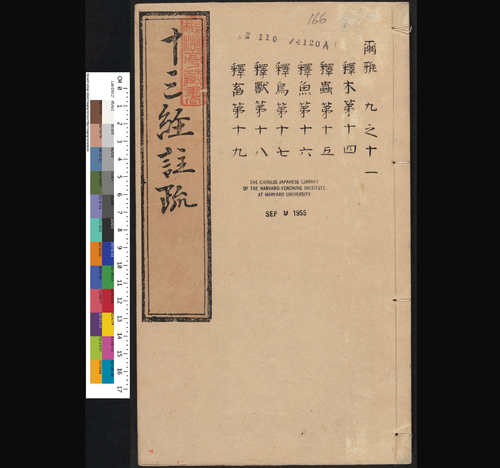 爾雅 九之十一
釋木第十四
釋蟲第十五
釋魚第十六
釋鳥第十七
釋獸第十八
釋畜第十九
十三經註疏
166
110
4120A
THE CHINESE-JAPANESE LIBRARY
OF THE HARVARD-YENCHING INSTITUTE
AT HARVARD UNIVERSITY
SEP 9 1955
0 1 2 3 4 5 6 7 8 9 10 11 12 13 14 15 16 17